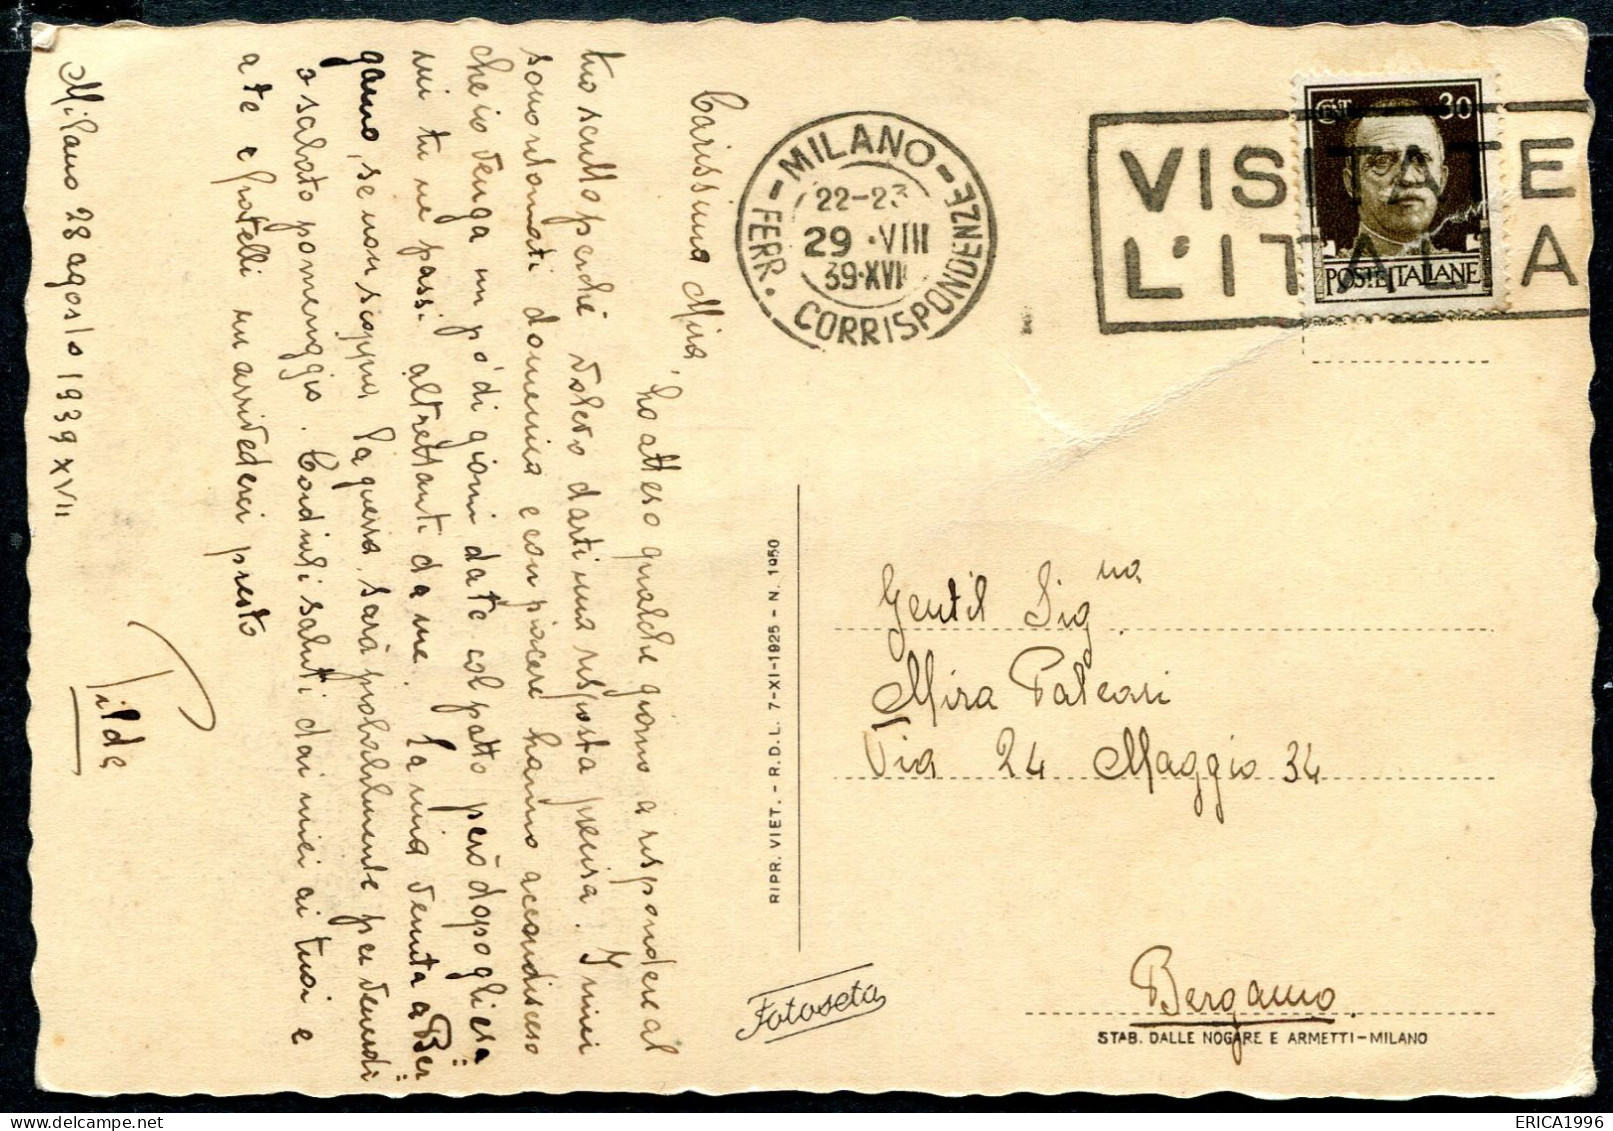 Carissima Mira,
ho atteso qualche giorno a risponder al
tuo scritto perchè volevo darti una risposta precisa. I miei
sono ritornati domenica e con piacere hanno accondisceso
che io venga un pò di giorni da te col patto però dopo gli esa
mi tu ne passi altrettanti da me. La mia venuta a Ber
gamo, se non scoppia la guerra, sarà probabilmente per venerdì
o sabato pomeriggio. Cordiali saluti dai miei ai tuoi e
a te e fratelli un arrivederci presto
Tilde
Milano 28 agosto 1939 XVII
MILANO
FERR. CORRISPONDENZE
22-23
29 ·VIII
39·XVII
VISITATE
L'ITALIA
CENT 30
POSTE ITALIANE
RIPR. VIET. - R.D.L. 7-XI-1925 - N. 1950
Fotoseta
Gentil Sig.na
Mira Paleari
Via 24 Maggio 34
Bergamo
STAB. DALLE NOGARE E ARMETTI-MILANO
ERICA1996